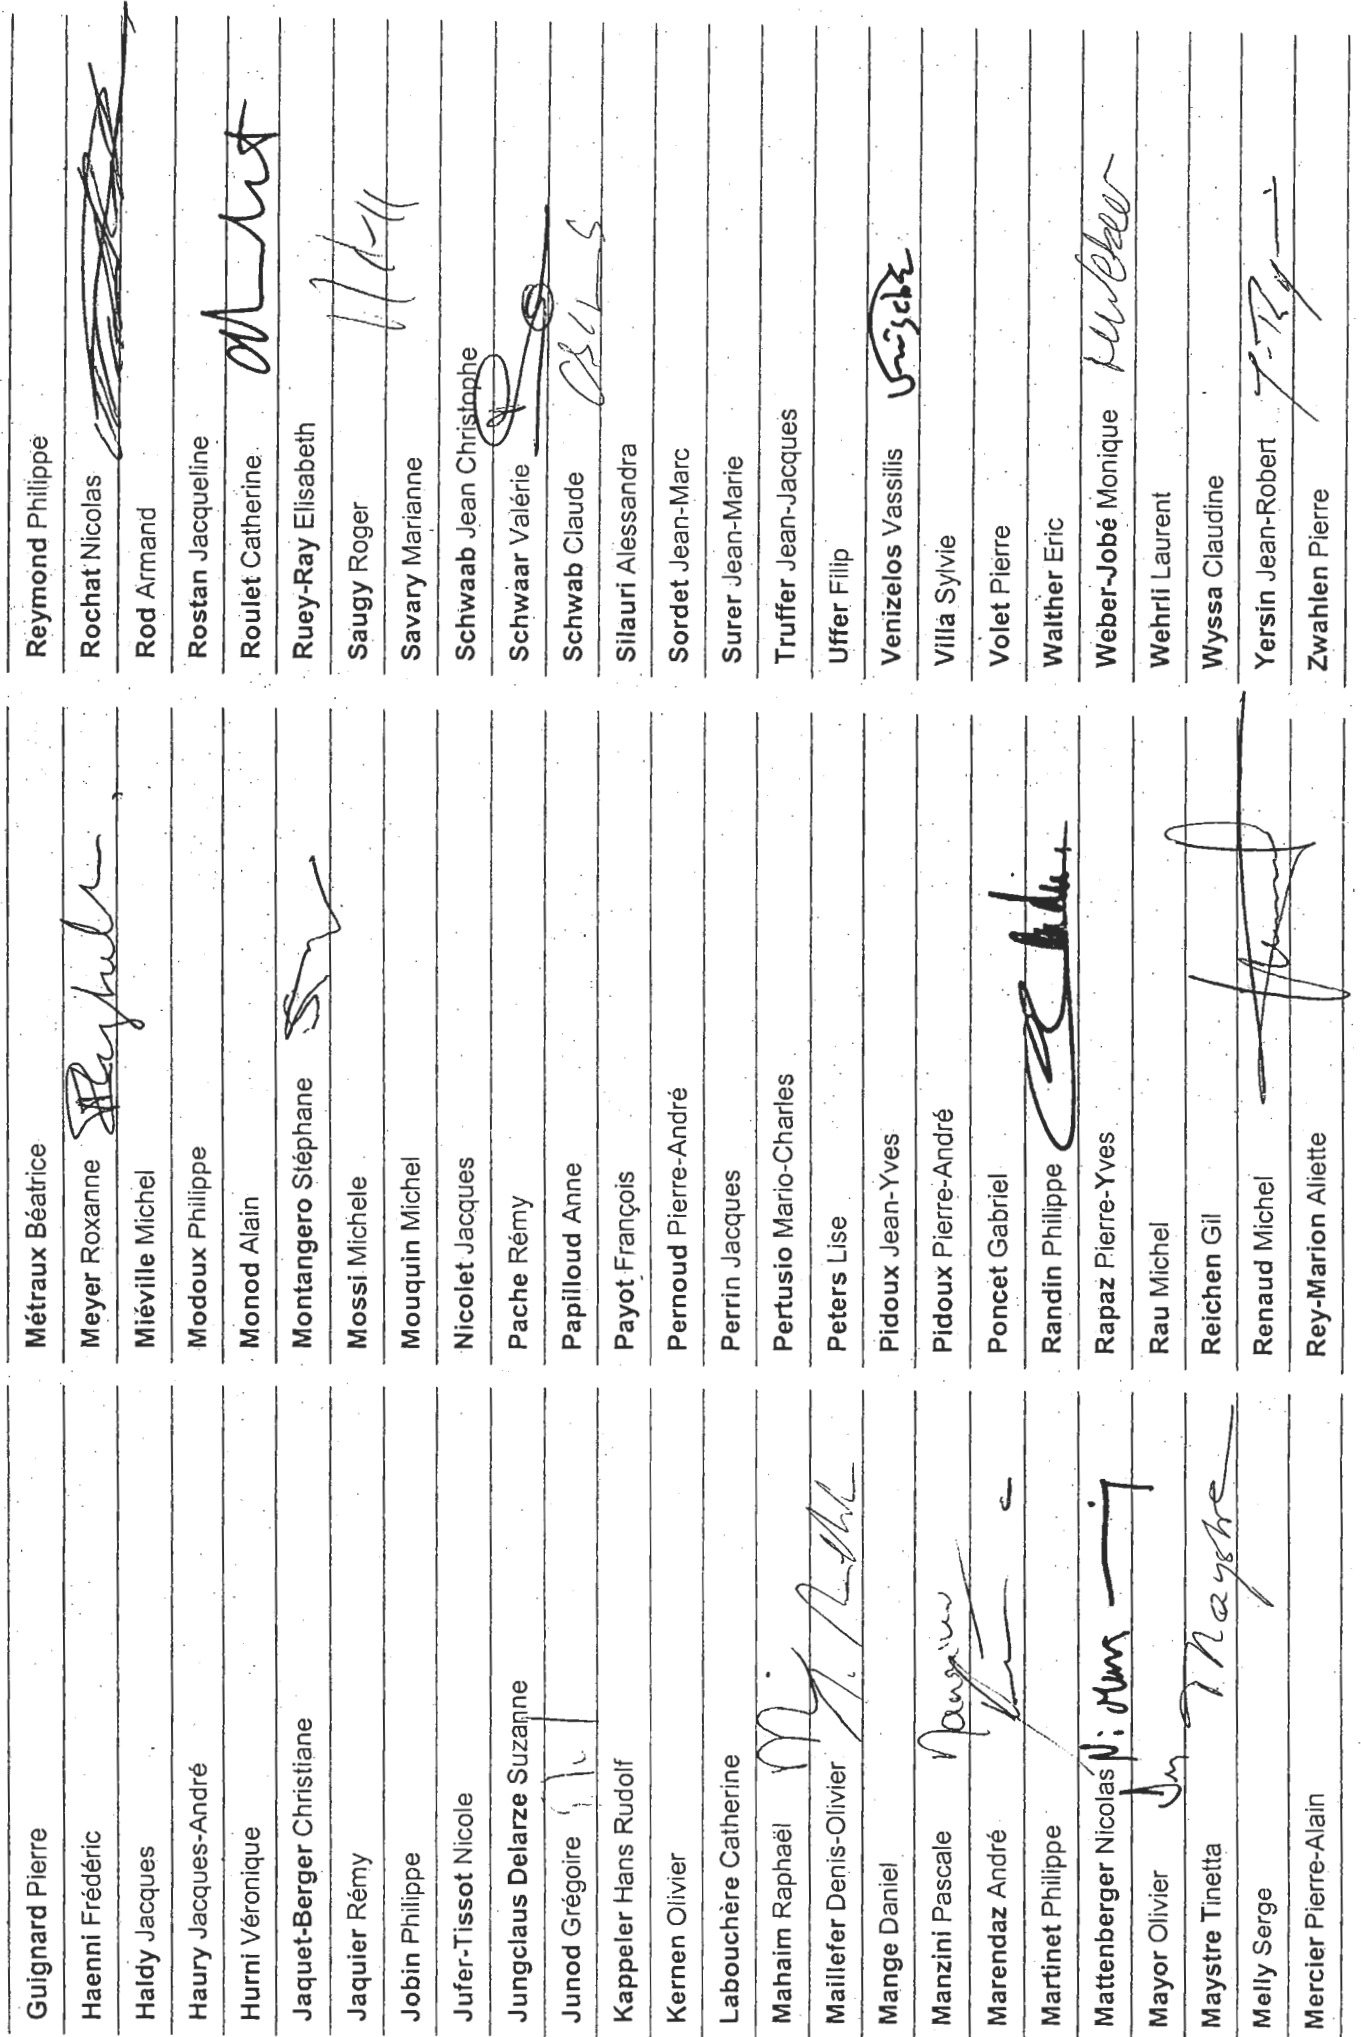 Guignard Pierre
Haenni Frédéric
Haldy Jacques
Haury Jacques-André
Hurni Véronique
Jaquet-Berger Christiane
Jaquier Rémy
Jobin Philippe
Jufer-Tissot Nicole
Jungclaus Delarze Suzanne
Junod Grégoire
Kappeler Hans Rudolf
Kernen Olivier
Labouchère Catherine
Mahaim Raphaël
Maillefer Denis-Olivier
Mange Daniel
Manzini Pascale
Marendaz André
Martinet Philippe
Mattenberger Nicolas
Mayor Olivier
Maystre Tinetta T. Maystre
Melly Serge
Mercier Pierre-Alain
Métraux Béatrice
Meyer Roxanne
Miéville Michel
Modoux Philippe
Monod Alain
Montangero Stéphane
Mossi Michele
Mouquin Michel
Nicolet Jacques
Pache Rémy
Papilloud Anne
Payot François
Pernoud Pierre-André
Perrin Jacques
Pertusio Mario-Charles
Peters Lise
Pidoux Jean-Yves
Pidoux Pierre-André
Poncet Gabriel
Randin Philippe
Rapaz Pierre-Yves
Rau Michel
Reichen Gil
Renaud Michel
Rey-Marion Aliette
Reymond Philippe
Rochat Nicolas
Rod Armand
Rostan Jacqueline
Roulet Catherine
Ruey-Ray Elisabeth
Saugy Roger
Savary Marianne
Schwaab Jean Christophe
Schwaar Valérie
Schwab Claude
Silauri Alessandra
Sordet Jean-Marc
Surer Jean-Marie
Truffer Jean-Jacques
Uffer Filip
Venizelos Vassilis
Villa Sylvie
Volet Pierre
Walther Eric
Weber-Jobé Monique
Wehrli Laurent
Wyssa Claudine
Yersin Jean-Robert
Zwahlen Pierre